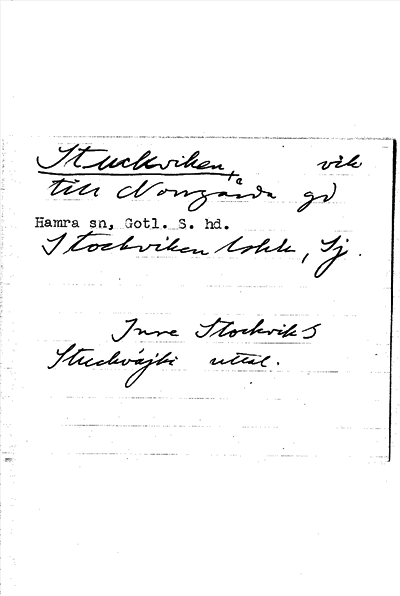 Stuckviken, vik
till Norrgårda gd
Hamra sn, Gotl. S. hd.
Stockviken lokk, Sj.
Inre Stockvik S
Stuckväjki uttal.